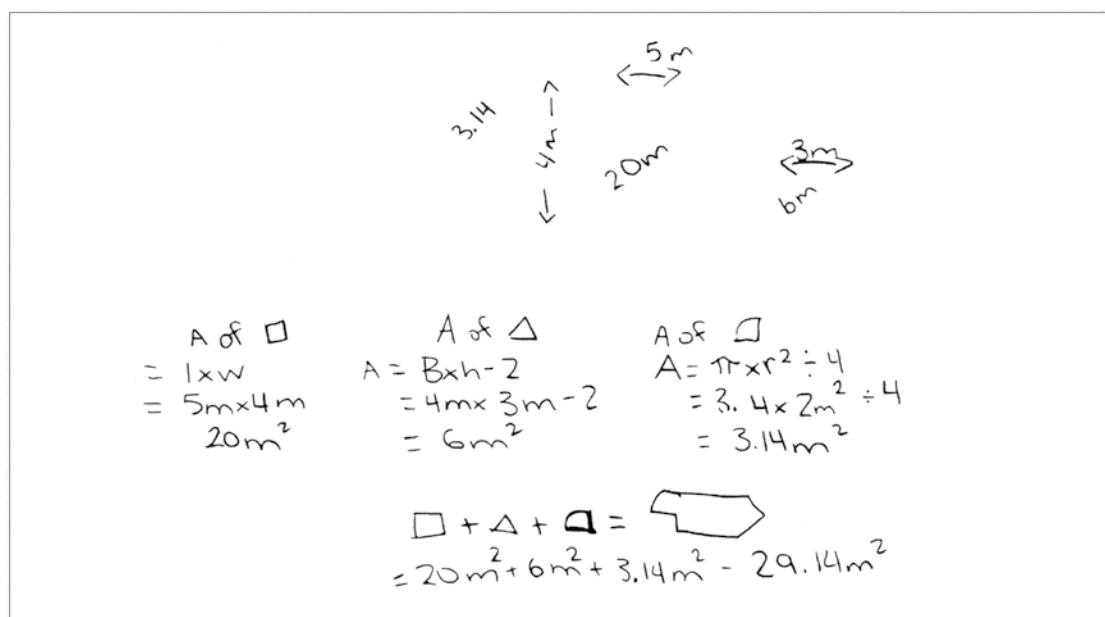 5m
3.14
4m
20m
3m
6m
A of □
= l x w
= 5m x 4m
20m²
A of △
A = B x h - 2
= 4m x 3m - 2
= 6m²
A of
A = π x r² ÷ 4
= 3. 4 x 2m² ÷ 4
= 3.14m²
□ + △ + =
= 20m² + 6m² + 3.14m² - 29.14m²